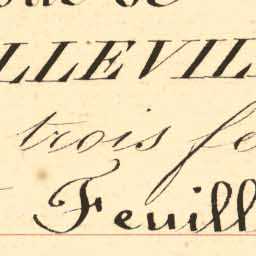 LLEVIL
trois fe
Feuill